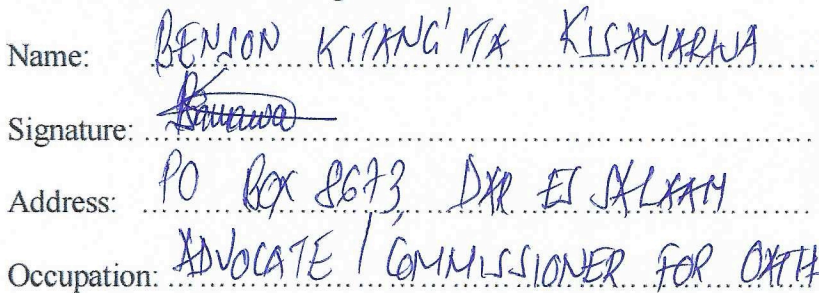 Name: BENSON KITANG'ITA KISAMARWA
Signature:
Address: PO BOX 8673, DAR ES SALAAM
Occupation: ADVOCATE / COMMISSIONER FOR OATH